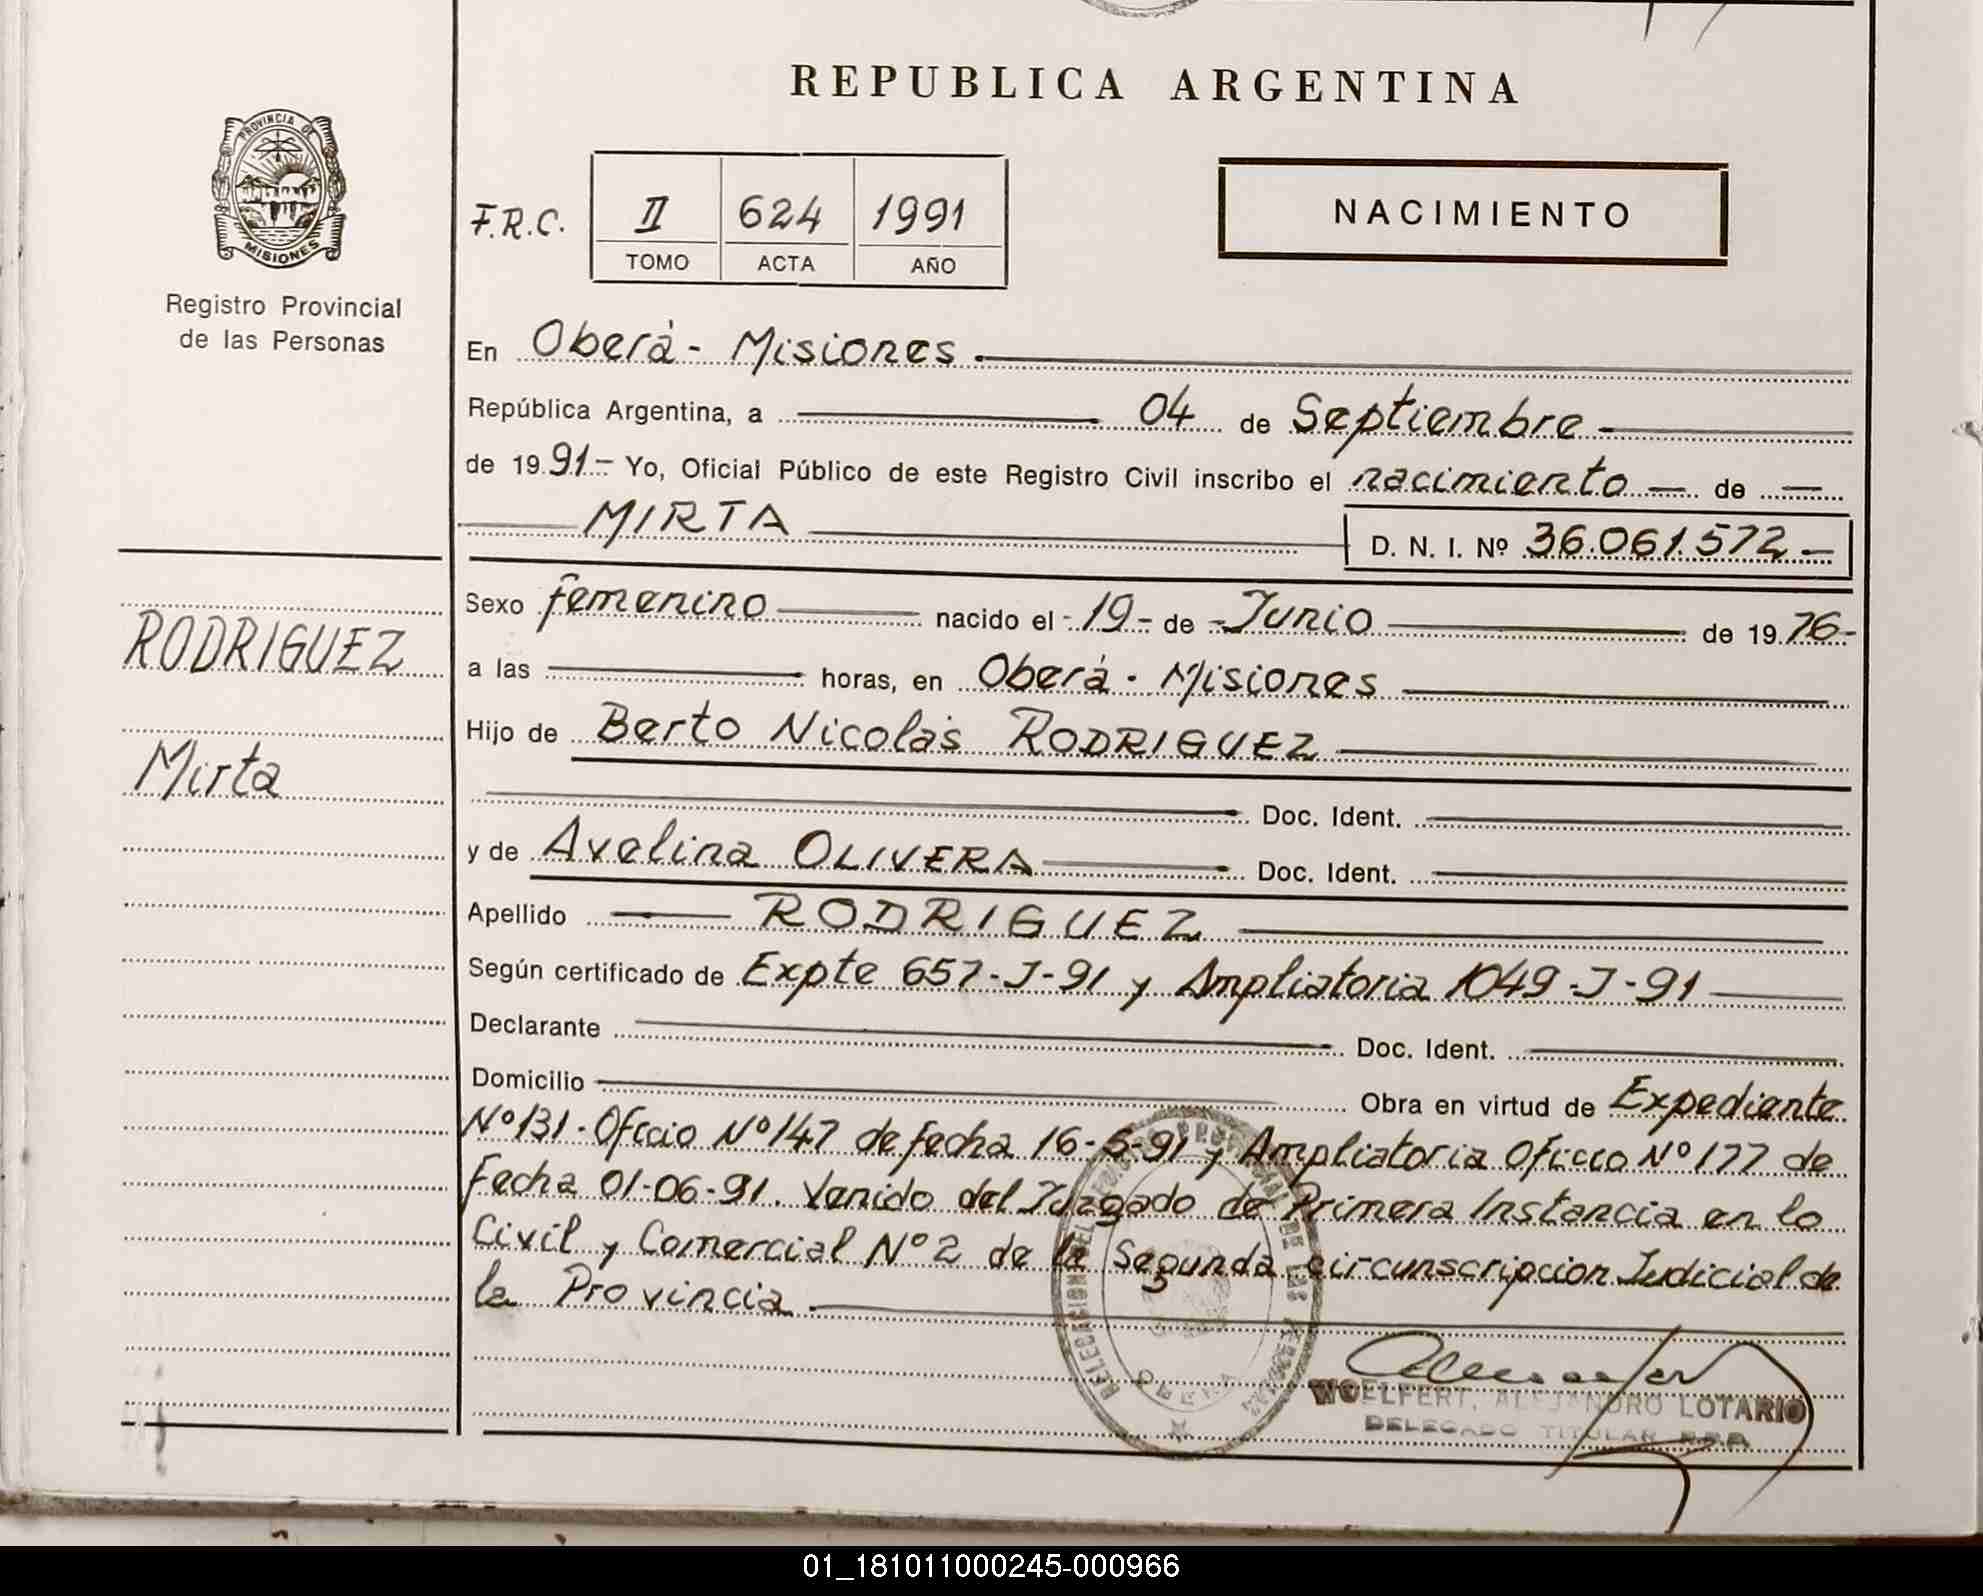 REPUBLICA ARGENTINA
PROVINCIA DE
MISIONES
Registro Provincial
de las Personas
F.R.C.
II 624 1991
TOMO ACTA AÑO
NACIMIENTO
En Oberá - Misiones.
República Argentina, a 04 de Septiembre
de 1991.- Yo, Oficial Público de este Registro Civil inscribo el nacimiento de
MIRTA D. N. I. Nº 36.061.572
RODRIGUEZ
Mirta
Sexo femenino nacido el -19- de -Junio de 1976-
a las horas, en Oberá - Misiones
Hijo de Berto Nicolás RODRIGUEZ
Doc. Ident.
y de Avelina OLIVERA Doc. Ident.
Apellido RODRIGUEZ
Según certificado de Expte 657-J-91 y Ampliatoria 1049-J-91
Declarante Doc. Ident.
Domicilio Obra en virtud de Expediente
Nº 131. Oficio Nº 147 de fecha 16-5-91 y Ampliatoria Oficio Nº 177 de
Fecha 01-06-91. Venido del Juzgado de Primera Instancia en lo
Civil y Comercial Nº 2 de la Segunda circunscripcion Judicial de
la Provincia
WOELFERT, ALEJANDRO LOTARIO
DELEGADO TITULAR R.P.P.
01_181011000245-000966